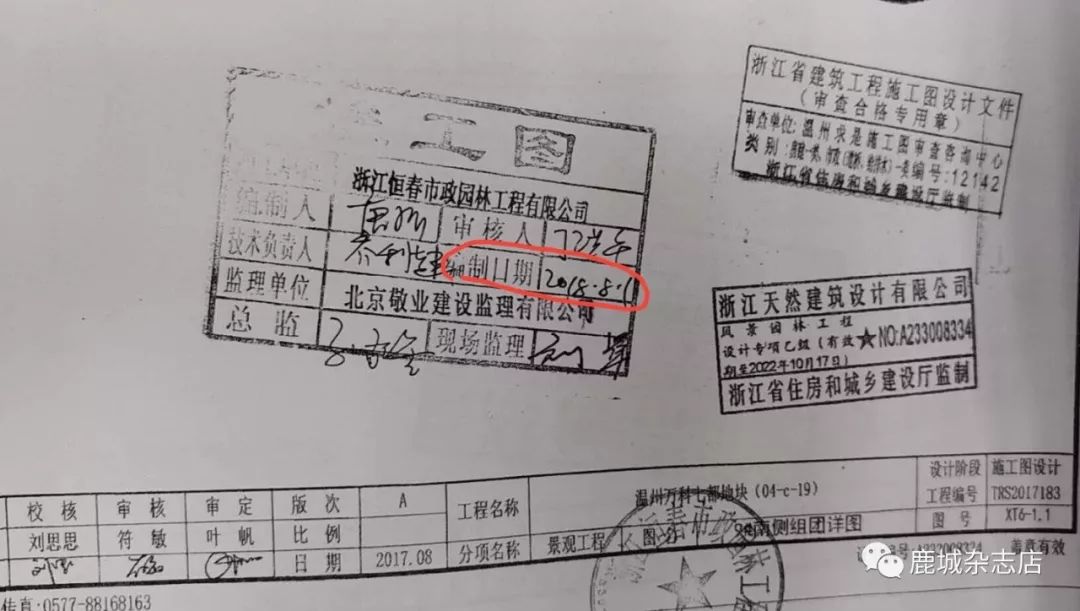 工图
浙江恒春市政园林工程有限公司
编制人 审核人
技术负责人 制日期 2018.8.11
监理单位 北京敬业建设监理有限公司
总监 现场监理
浙江省建筑工程施工图设计文件
(审查合格专用章)
审查单位:温州求是施工图审查咨询中心
类别: 编号:12142
浙江省住房和城乡建设厅监制
浙江天然建筑设计有限公司
风景园林工程
设计专项乙级(有效 NO:A233008334
期至2022年10月17日)
浙江省住房和城乡建设厅监制
校核 审核 审定 版次 A 工程名称 温州万科七都地块(04-c-19) 设计阶段 施工图设计
刘思思 符敏 叶帆 比例 工程编号 TRS2017183
日期 2017.08 分项名称 景观工程 图 南侧组团详图 图号 XT6-1.1
A233008334 盖章有效
传真:0577-88168163
鹿城杂志店